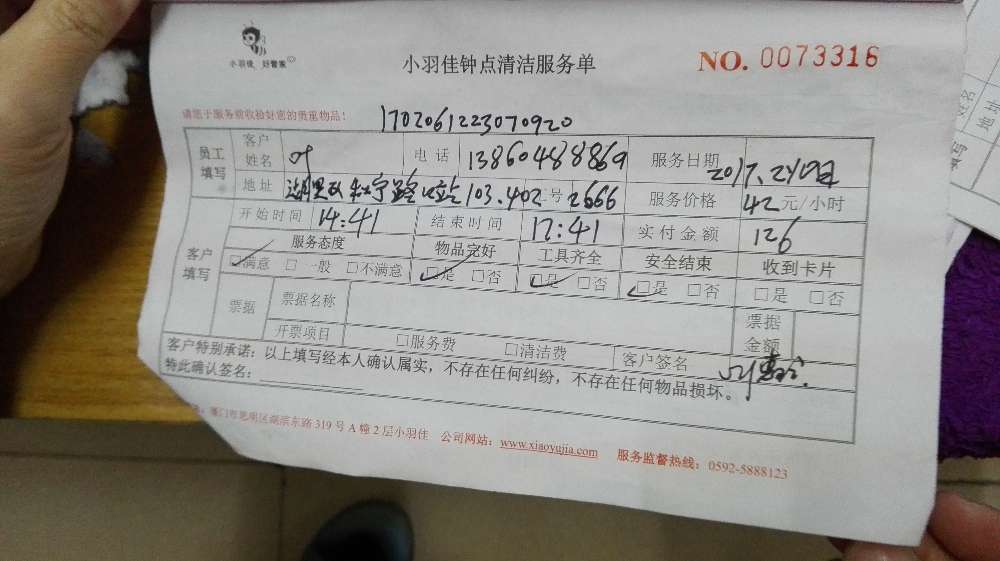 小羽佳 好管家
小羽佳钟点清洁服务单
NO. 0073316
请您于服务前收验好您的贵重物品！
1702061223070920
员工填写 客户姓名 叶 电话 13860488869 服务日期 2017.2
地址 103.402 号 2666 服务价格 42元/小时
客户填写 开始时间 14:41 结束时间 17:41 实付金额 126
服务态度 物品完好 工具齐全 安全结束 收到卡片
☑满意 □一般 □不满意 ☑是 □否 ☑是 □否 ☑是 □否 □是 □否
票据 票据名称 票据金额
开票项目 □服务费 □清洁费 客户签名
客户特别承诺：以上填写经本人确认属实，不存在任何纠纷，不存在任何物品损坏。
特此确认签名：
厦门市思明区湖滨东路319号A幢2层小羽佳 公司网站：www.xiaoyujia.com 服务监督热线：0592-5888123